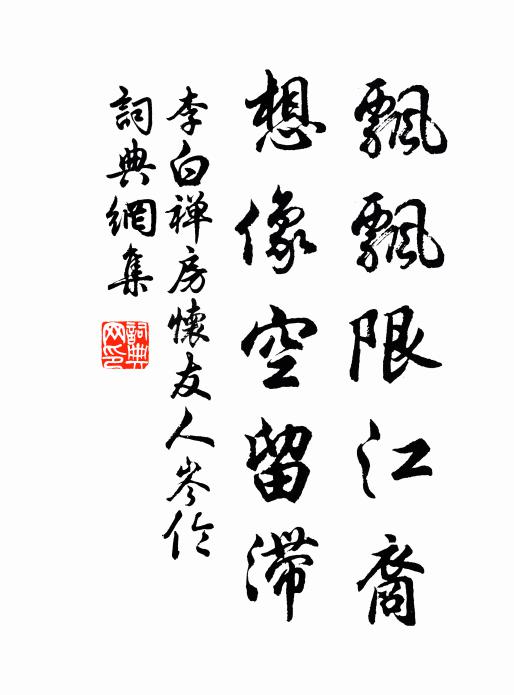 飄飄限江裔
想像空留滯
李白禅房懷友人岑倫
詞典網集
詞典
网印